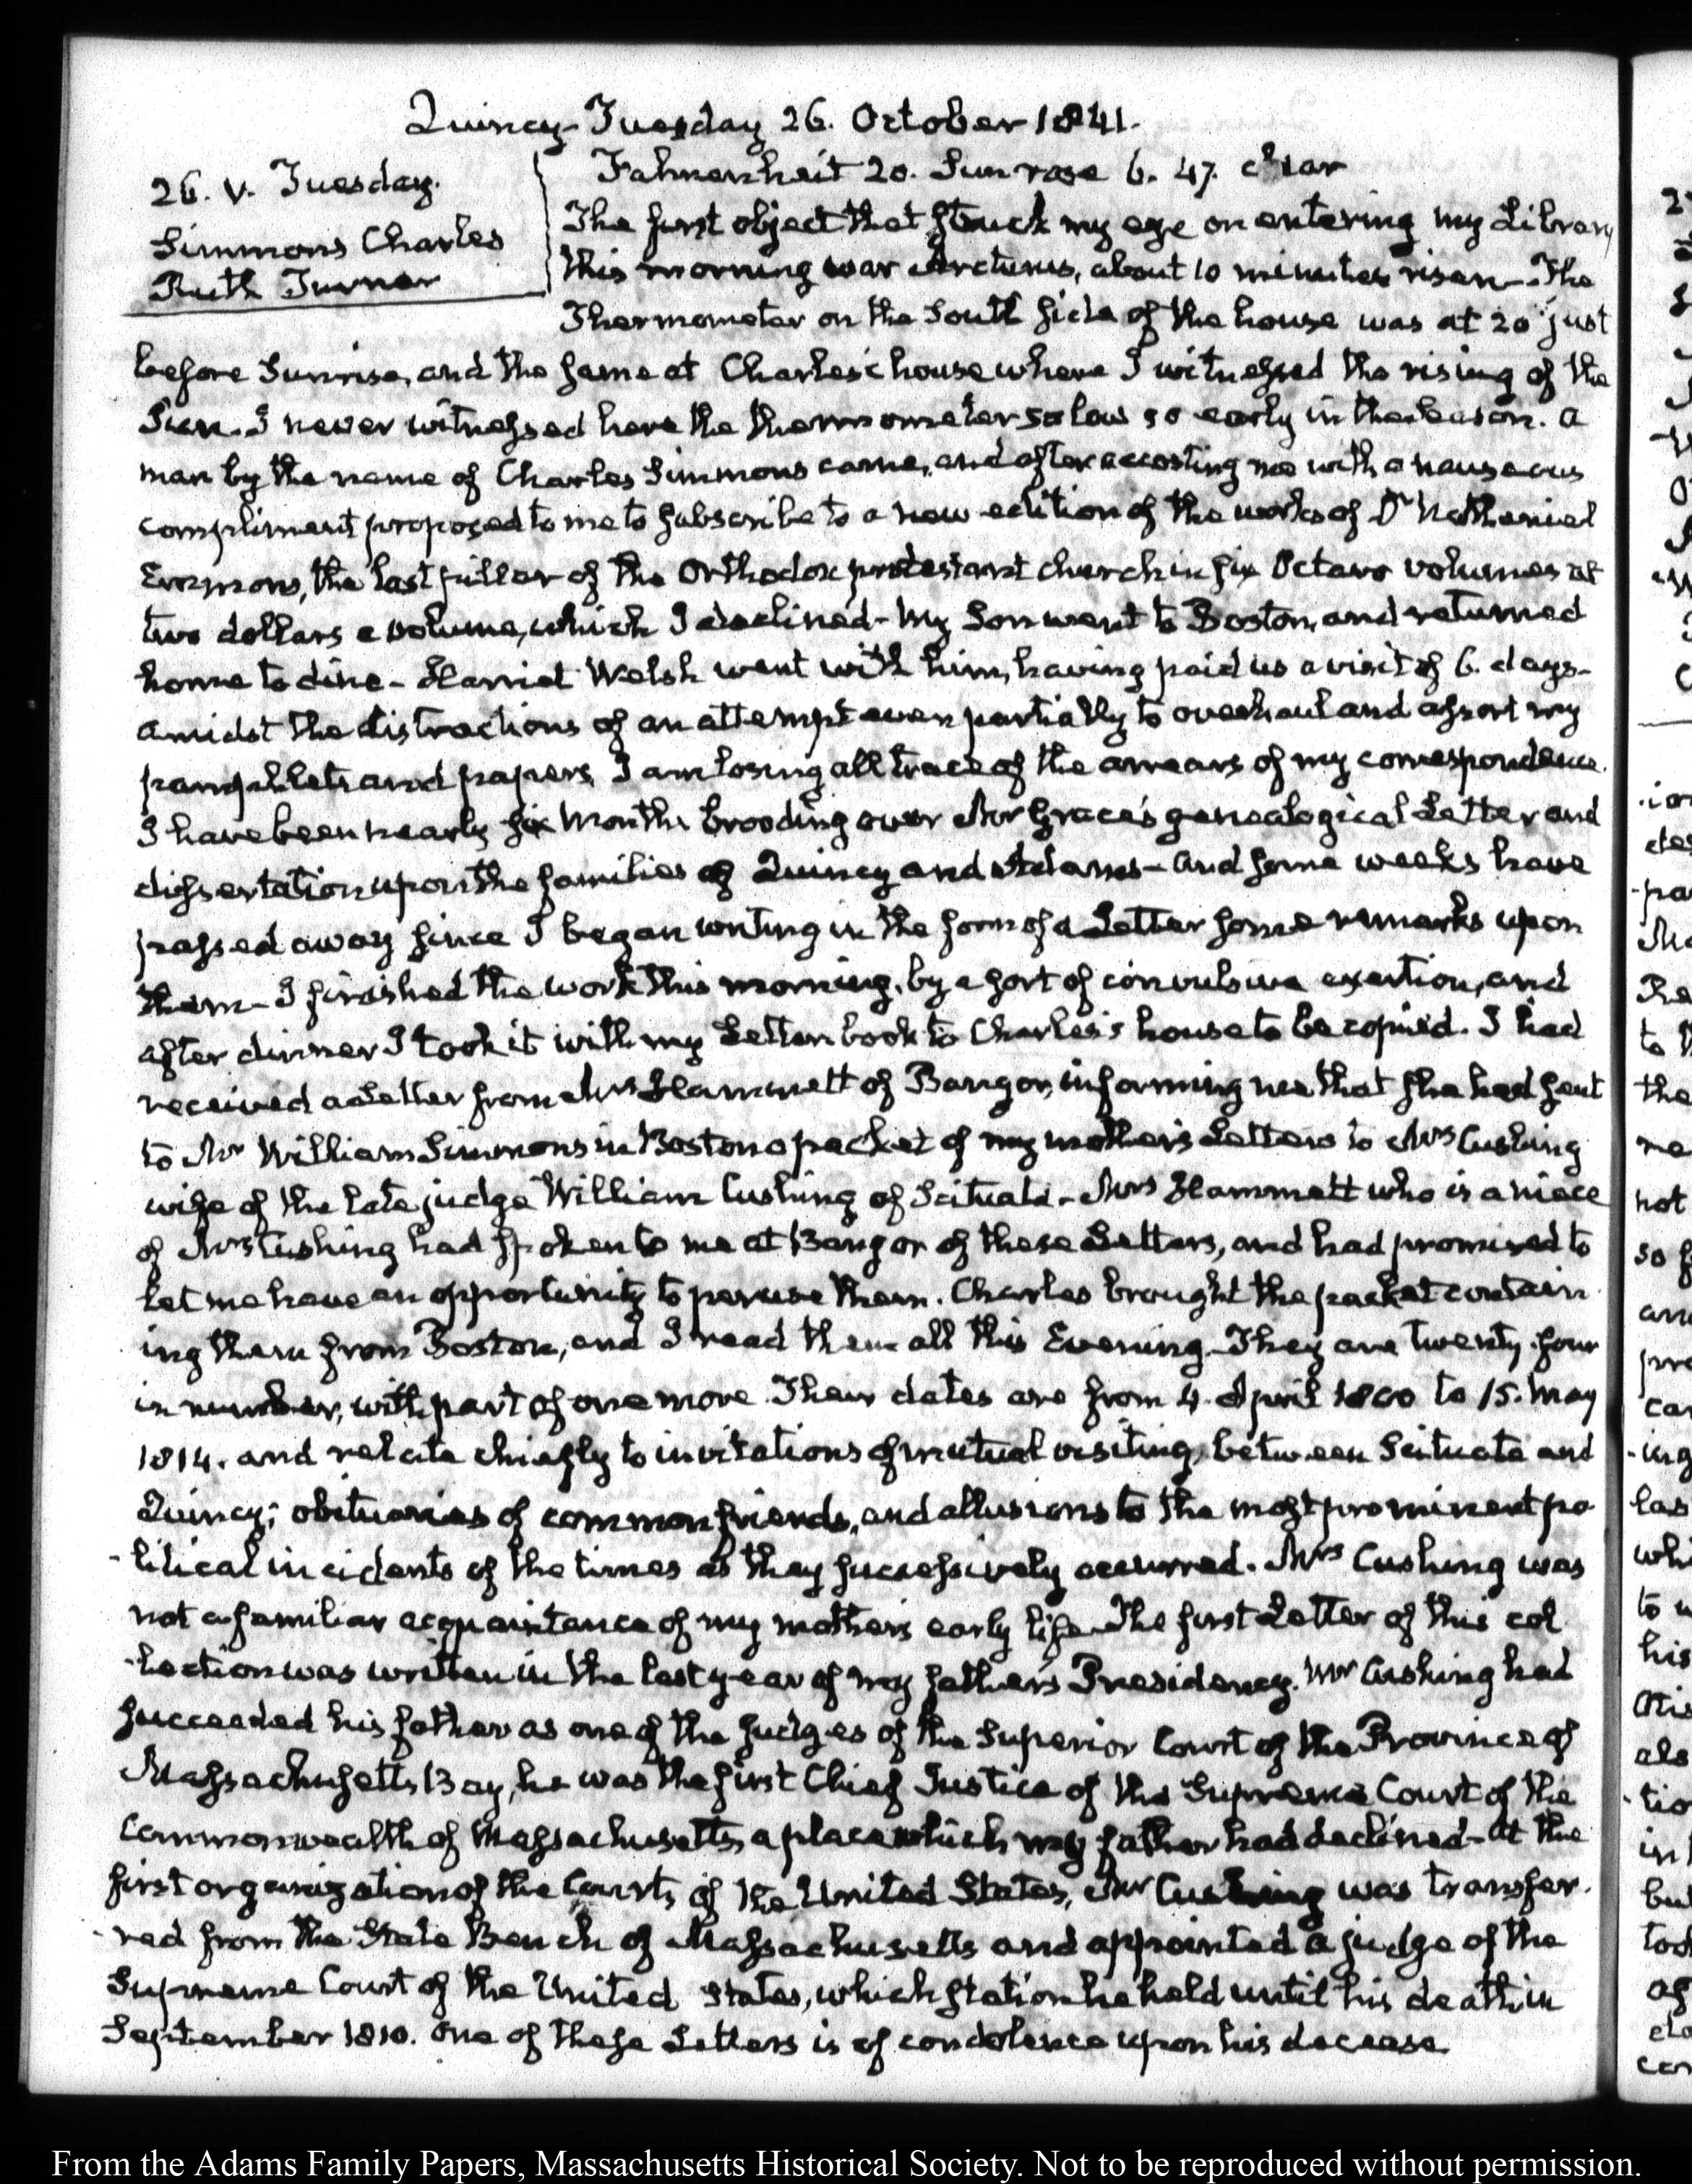 Quincy Tuesday 26. October 1841.
26. V. Tuesday.
Simmons Charles
Ruth Turner
Fahrenheit 20. Sun rose 6. 47. clear
The first object that struck my eye on entering my Library
this morning was Arcturus, about 10 minutes risen - The
Thermometer on the South side of the house was at 20 just
before Sunrise, and the same at Charles's house where I witnessed the rising of the
Sun. I never witnessed here the thermometer so low so early in the season. A
man by the name of Charles Simmons came, and after accosting me with a nauseous
compliment proposed to me to subscribe to a new edition of the works of Dr Nathaniel
Emmons, the last pillar of the Orthodox protestant church in six Octavo volumes at
two dollars a volume, which I declined - My Son went to Boston, and returned
home to dine - Harriet Welsh went with him, having paid us a visit of 6. days -
Amidst the distractions of an attempt even partially to overhaul and assort my
pamphlets and papers, I am losing all trace of the arrears of my correspondence.
I have been nearly six months brooding over Mr Grace's genealogical Letter and
dissertation upon the families of Quincy and Adams - and some weeks have
passed away since I began writing in the form of a Letter some remarks upon
them - I finished the work this morning, by a sort of convulsive exertion, and
after dinner I took it with my Letter book to Charles's house to be copied. I had
received a Letter from Mrs Hammett of Bangor, informing me that she had sent
to Mr William Simmons in Boston a packet of my mother's Letters to Mrs Cushing
wife of the late judge William Cushing of Scituate - Mrs Hammett who is a niece
of Mrs Cushing had spoken to me at Bangor of these Letters, and had promised to
let me have an opportunity to peruse them. Charles brought the packet contain
ing them from Boston, and I read them all this Evening - They are twenty-four
in number, with part of one more. Their dates are from 4. April 1800 to 15. May
1814. and relate chiefly to invitations of mutual visiting, between Scituate and
Quincy; obituaries of common friends, and allusions to the most prominent po
-litical incidents of the times as they successively occurred. Mrs Cushing was
not a familiar acquaintance of my mother's early life - The first Letter of this col
-lection was written in the last year of my father's Presidency. Mr Cushing had
succeeded his father as one of the judges of the Superior Court of the Province of
Massachusetts Bay, he was the first Chief Justice of the Supreme Court of the
Commonwealth of Massachusetts, a place which my father had declined - At the
first organization of the Courts of the United States, Mr Cushing was transfer-
-red from the State Bench of Massachusetts and appointed a judge of the
Supreme Court of the United States, which station he held until his death in
September 1810. One of these Letters is of condolence upon his decease
From the Adams Family Papers, Massachusetts Historical Society. Not to be reproduced without permission.